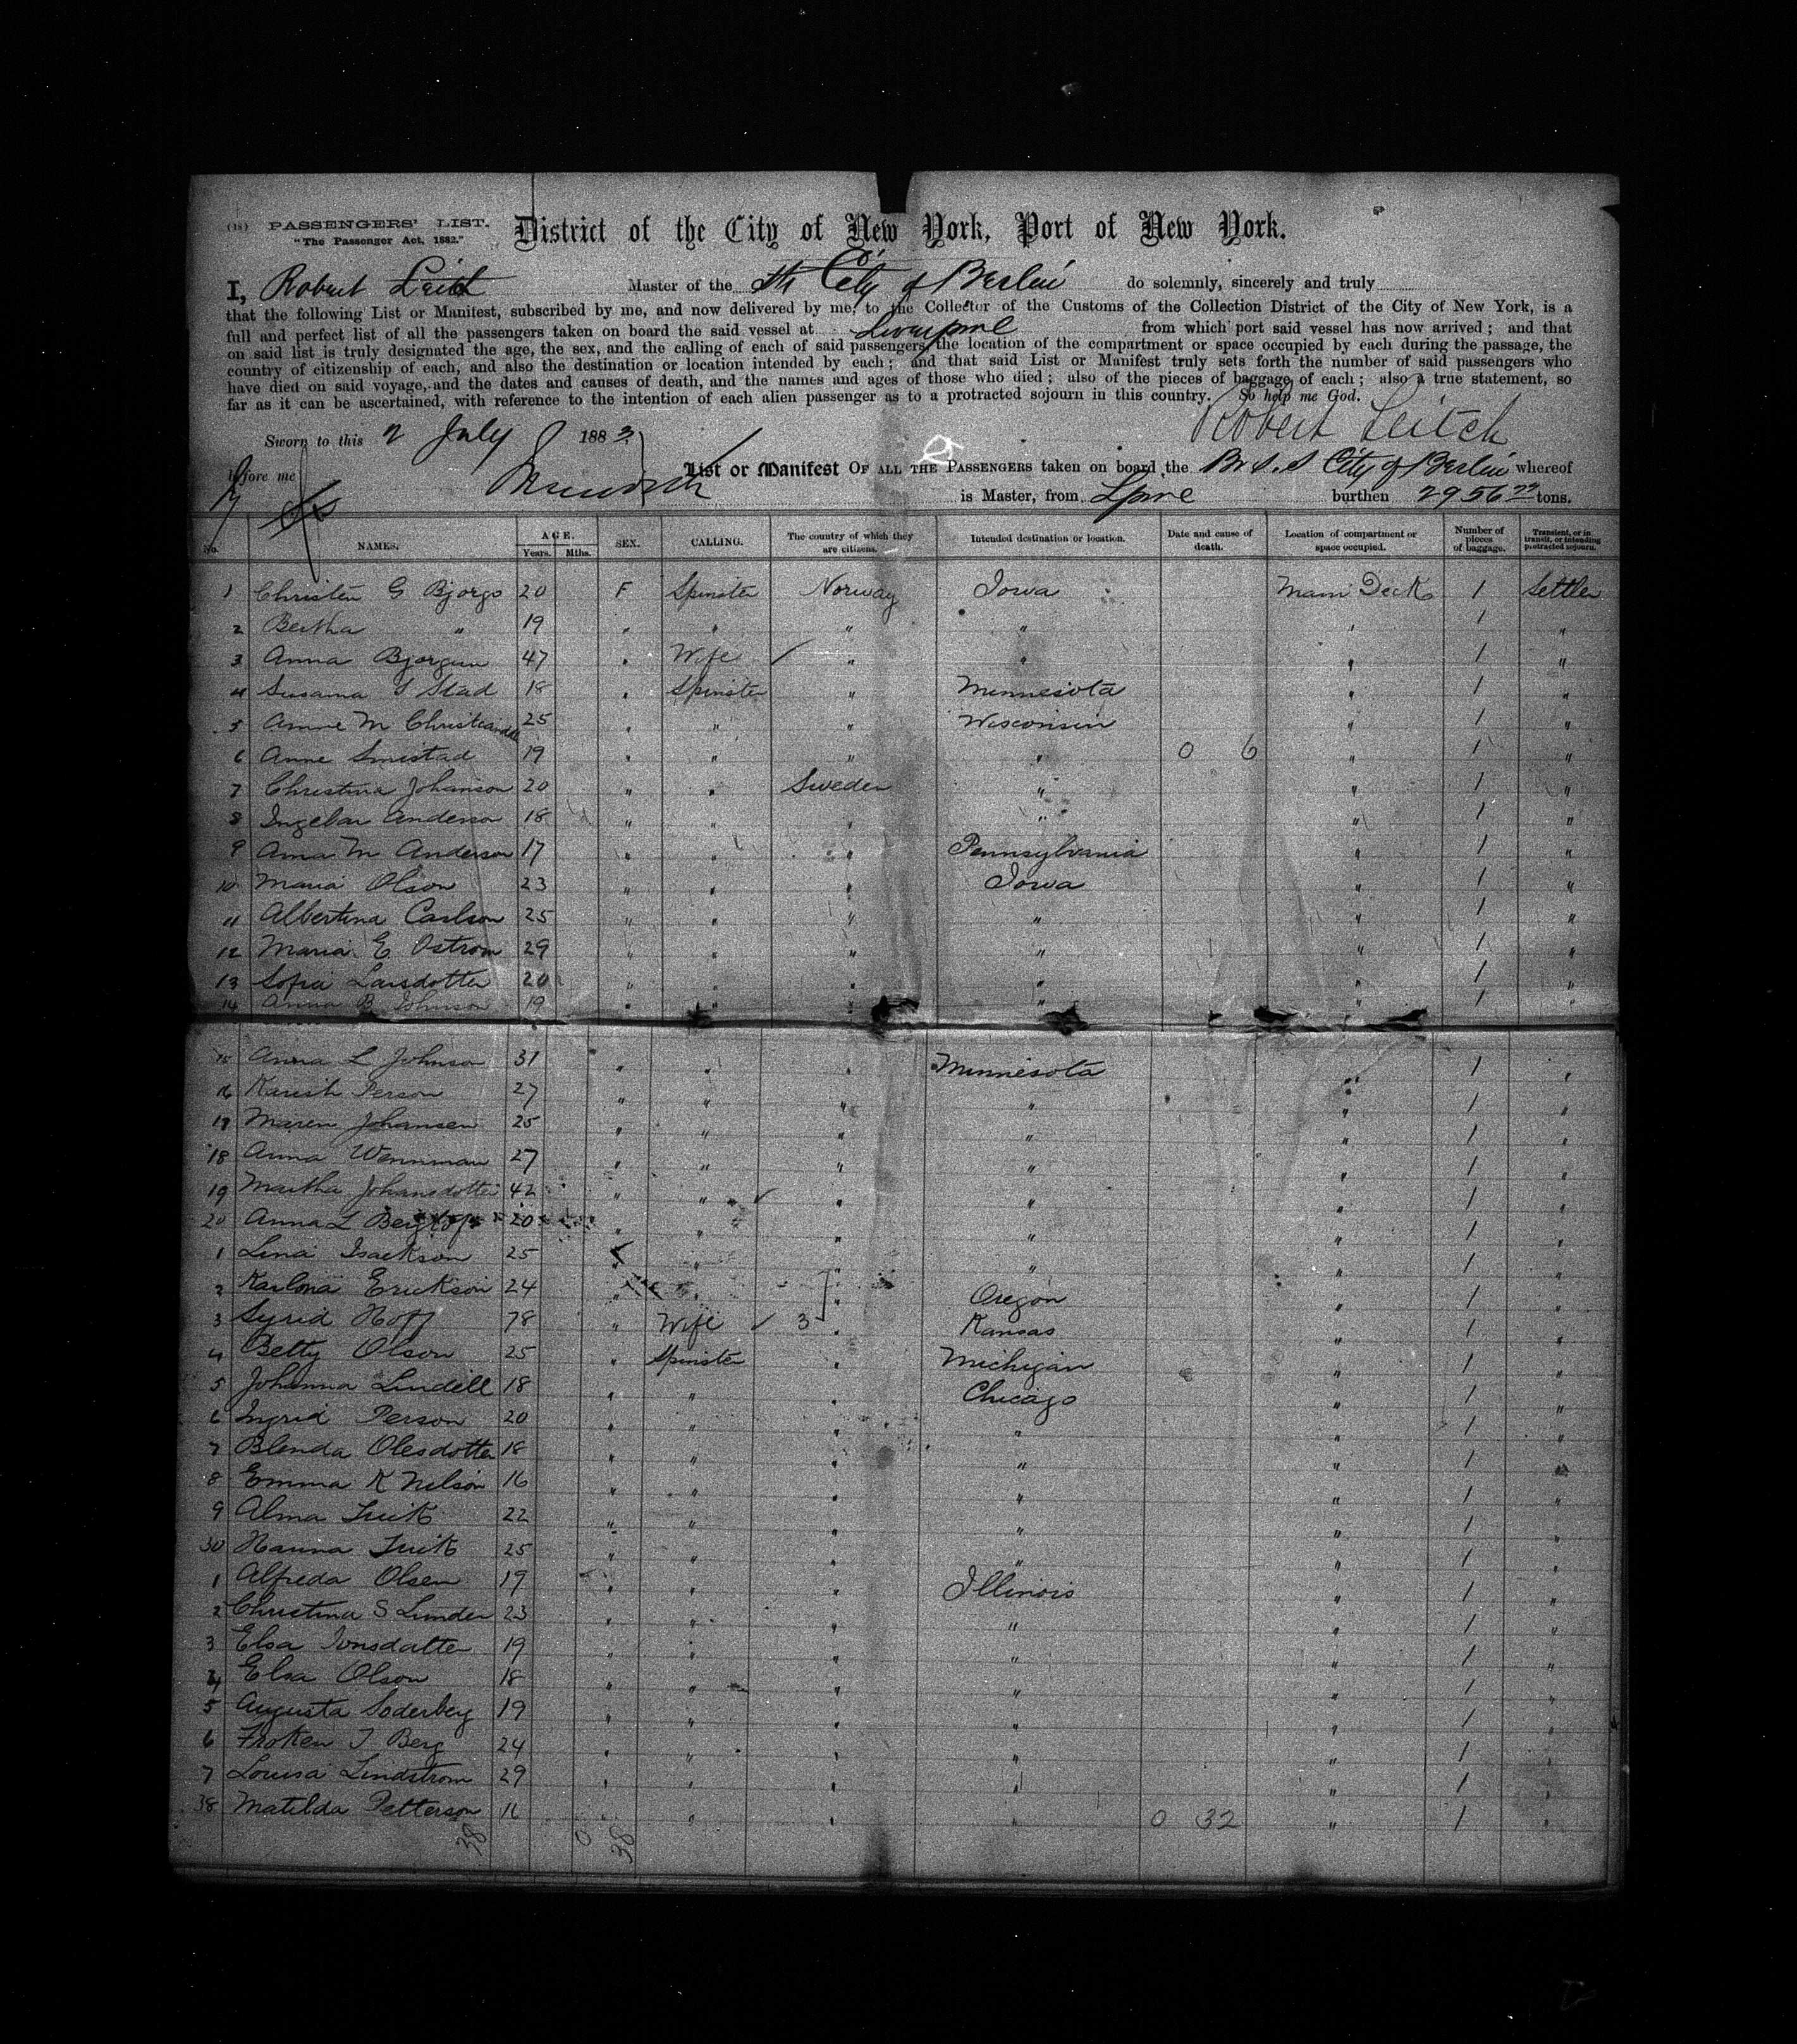 (18) PASSENGERS' LIST. District of the City of New York, Port of New York.
"The Passenger Act, 1882."
I, Robert Leitch Master of the SS City of Berlin do solemnly, sincerely and truly
that the following List or Manifest, subscribed by me, and now delivered by me, to the Collector of the Customs of the Collection District of the City of New York, is a
full and perfect list of all the passengers taken on board the said vessel at Liverpool from which port said vessel has now arrived; and that
on said list is truly designated the age, the sex, and the calling of each of said passengers, the location of the compartment or space occupied by each during the passage, the
country of citizenship of each, and also the destination or location intended by each; and that said List or Manifest truly sets forth the number of said passengers who
have died on said voyage, and the dates and causes of death, and the names and ages of those who died; also of the pieces of baggage of each; also a true statement, so
far as it can be ascertained, with reference to the intention of each alien passenger as to a protracted sojourn in this country. So help me God.
Robert Leitch
Sworn to this 2 July 1883
before me
List or Manifest OF ALL THE PASSENGERS taken on board the Br S.S City of Berlin whereof
is Master, from Lpool burthen 2956 tons.
No. NAMES. AGE. Years. Mths. SEX. CALLING. The country of which they are citizens. Intended destination or location. Date and cause of death. Location of compartment or space occupied. Number of pieces of baggage. Transient, or in transit, or intending protracted sojourn.
1 Christen G Bjorgo 20 F Spinster Norway Iowa Main Deck 1 Settler
2 Bertha " 19 " " " " " 1 "
3 Anna Bjorgum 47 " Wife " " " 1 "
4 Susanna Stad 18 " Spinster " Minnesota " 1 "
5 Anne M 25 " " " Wisconsin " 1 "
6 Anne Smistad 19 " " " " 0 6 " 1 "
7 Christina Johanson 20 " " Sweden " " 1 "
8 Ingebar Anderson 18 " " " " " 1 "
9 Anna M Anderson 17 " " " Pennsylvania " 1 "
10 Maria Olson 23 " " " Iowa " 1 "
11 Albertina Carlson 25 " " " " " 1 "
12 Maria E Ostrom 29 " " " " " 1 "
13 Sofia Larsdotter 20 " " " " " 1 "
14 Anna B Johnson 19 " " " " " 1 "
15 Anna L Johnson 31 " " " Minnesota " 1 "
16 Person 27 " " " " " 1 "
17 Maren Johansen 25 " " " " " 1 "
18 Anna Wennman 27 " " " " " 1 "
19 Martha Johansdotter 42 " " " " " 1 "
20 Anna L 20 " " " " " 1 "
1 Lina Isackson 25 " " " " " 1 "
2 Karlona Erickson 24 " " " Oregon " 1 "
3 Syrid Hoff 78 " Wife 3 " Kansas " 1 "
4 Betty Olson 25 " Spinster " Michigan " 1 "
5 Johanna Lindell 18 " " " Chicago " 1 "
6 Ingrid Person 20 " " " " " 1 "
7 Blenda Olesdotter 18 " " " " " 1 "
8 Emma K Nelson 16 " " " " " 1 "
9 Alma 22 " " " " " 1 "
30 Hanna 25 " " " " " 1 "
1 Alfreda Olsen 19 " " " Illinois " 1 "
2 Christina S Linder 23 " " " " " 1 "
3 Elsa 19 " " " " " 1 "
4 Elsa Olson 18 " " " " " 1 "
5 Augusta Soderberg 19 " " " " " 1 "
6 Froken J Berg 24 " " " " " 1 "
7 Louisa Lindstrom 29 " " " " " 1 "
38 Matilda Petterson 16 " " " " 0 32 " 1 "
38 0 38